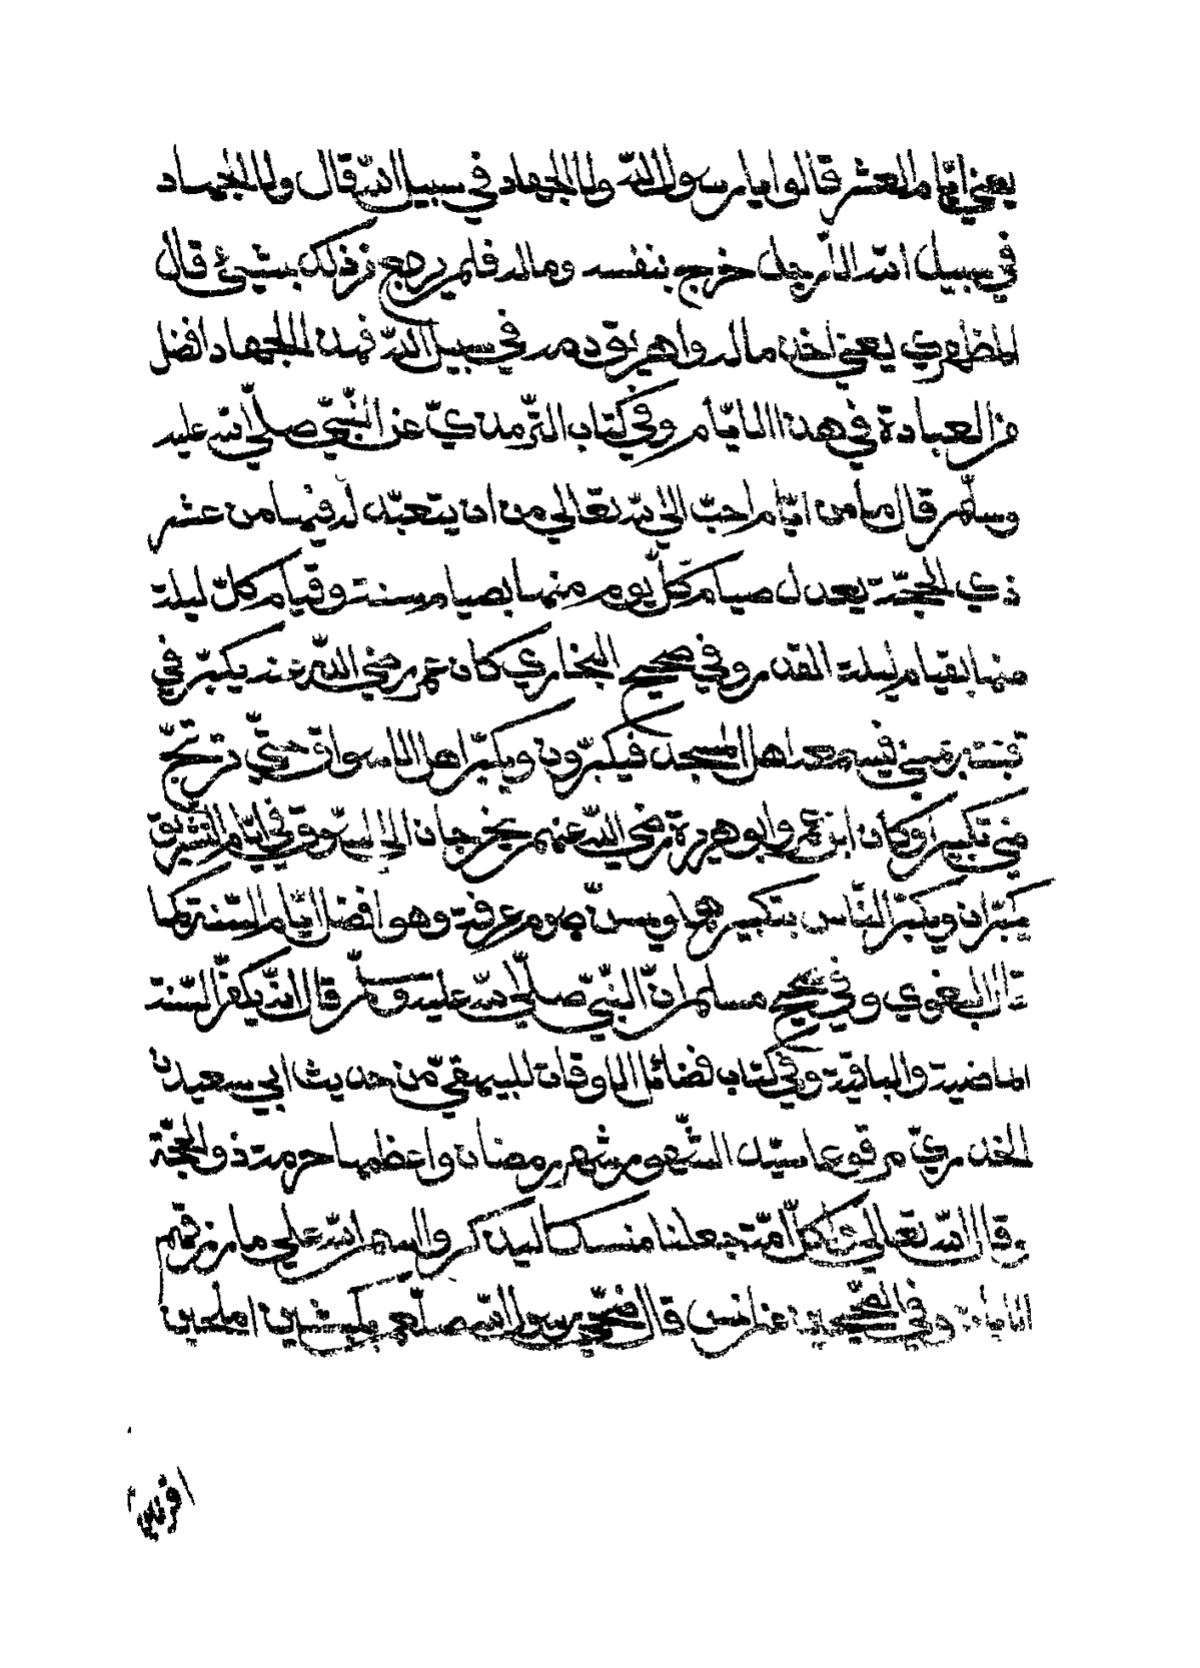 يعني ايّام العشر قالوا يا رسول الله ولا الجهاد في سبيل الله قال ولا الجهاد
في سبيل الله الّا رجل خرج بنفسه وماله فلم يرجع من ذلك بشيء قال
المظهري يعني اخذ ماله واهريق دمه في سبيل الله فهذا الجهاد افضل
من العبادة في هذا الايّام وفي كتاب التّرمذيّ عن النّبيّ صلّى الله عليه
وسلّم قال ما من ايّام احبّ الى الله تعالى من ان يتعبّد له فيها من عشر
ذي الحجّة يعدل صيام كلّ يوم منها بصيام سنة وقيام كلّ ليلة
منها بقيام ليلة القدر وفي صحيح البخاري كان عمر رضي الله عنه يكبّر في
قبّته بمنى فيسمعه اهل المسجد فيكبّرون ويكبّر اهل الاسواق حتّى ترتجّ
منى تكبيرا وكان ابن عمر وابو هريرة رضي الله عنهم يخرجان الى السّوق في ايّام التشريق
يكبّران ويكبّر النّاس بتكبيرهما ويسنّ صوم عرفة وهو افضل ايّام السّنة كما
قال البغوي وفي صحيح مسلم انّ النّبيّ صلّى الله عليه وسلّم قال انّه يكفّر السّنة
الماضية والباقية وفي كتاب فضائل الاوقات للبيهقيّ من حديث ابي سعيد
الخدريّ مرفوعا سيّد الشّهور شهر رمضان واعظمها حرمة ذو الحجّة
وقال الله تعالى ولكلّ امّة جعلنا منسكا ليذكروا اسم الله على ما رزقهم
الآية وفي الصّحيحين عن انس قال ضحّى رسول الله صلعم بكبشين املحين
اقرنين